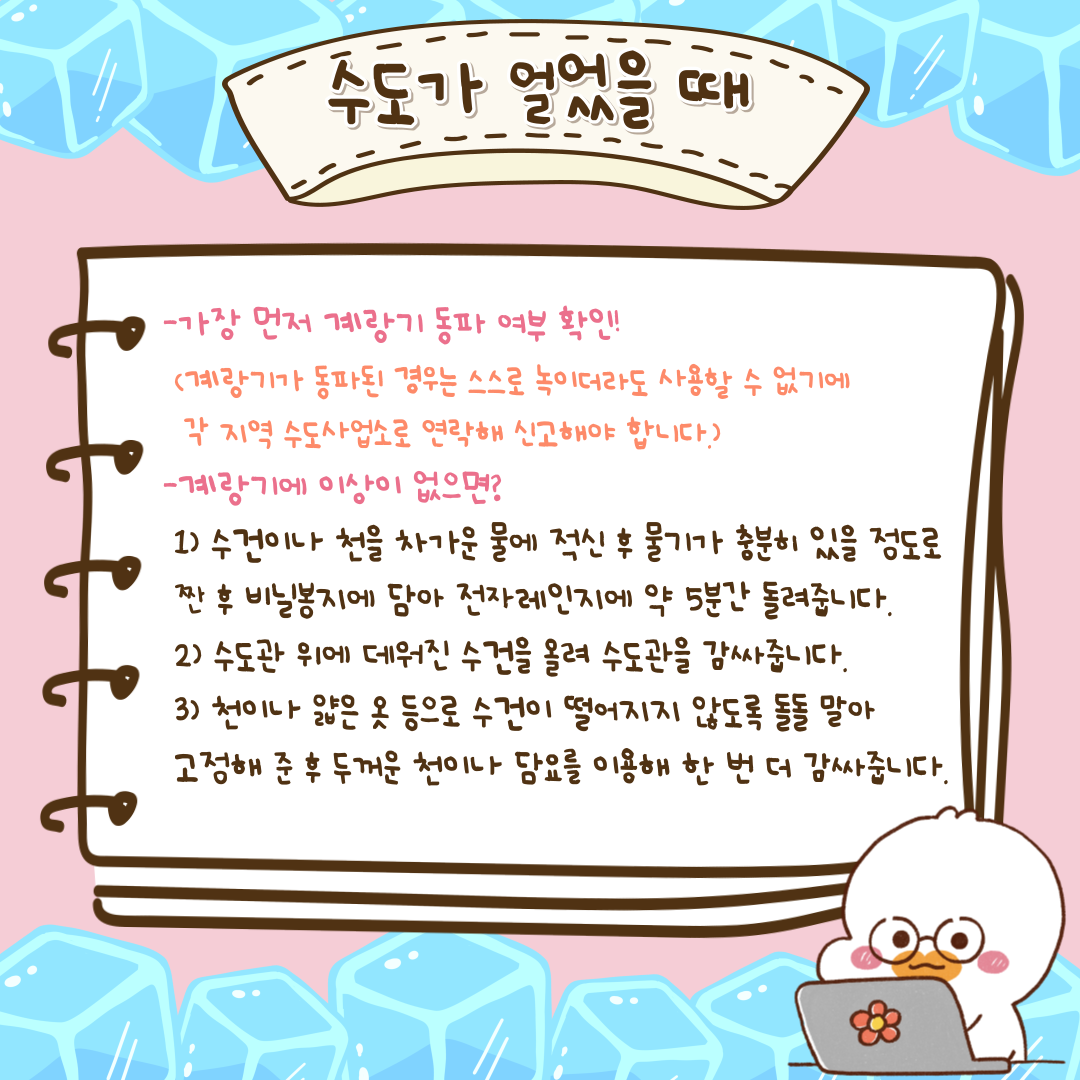 수도가 얼었을 때
-가장 먼저 계랑기 동파 여부 확인!
(계랑기가 동파된 경우는 스스로 녹이더라도 사용할 수 없기에
각 지역 수도사업소로 연락해 신고해야 합니다.)
-계랑기에 이상이 없으면?
1) 수건이나 천을 차가운 물에 적신 후 물기가 충분히 있을 정도로
짠 후 비닐봉지에 담아 전자레인지에 약 5분간 돌려줍니다.
2) 수도관 위에 데워진 수건을 올려 수도관을 감싸줍니다.
3) 천이나 얇은 옷 등으로 수건이 떨어지지 않도록 돌돌 말아
고정해 준 후 두꺼운 천이나 담요를 이용해 한 번 더 감싸줍니다.